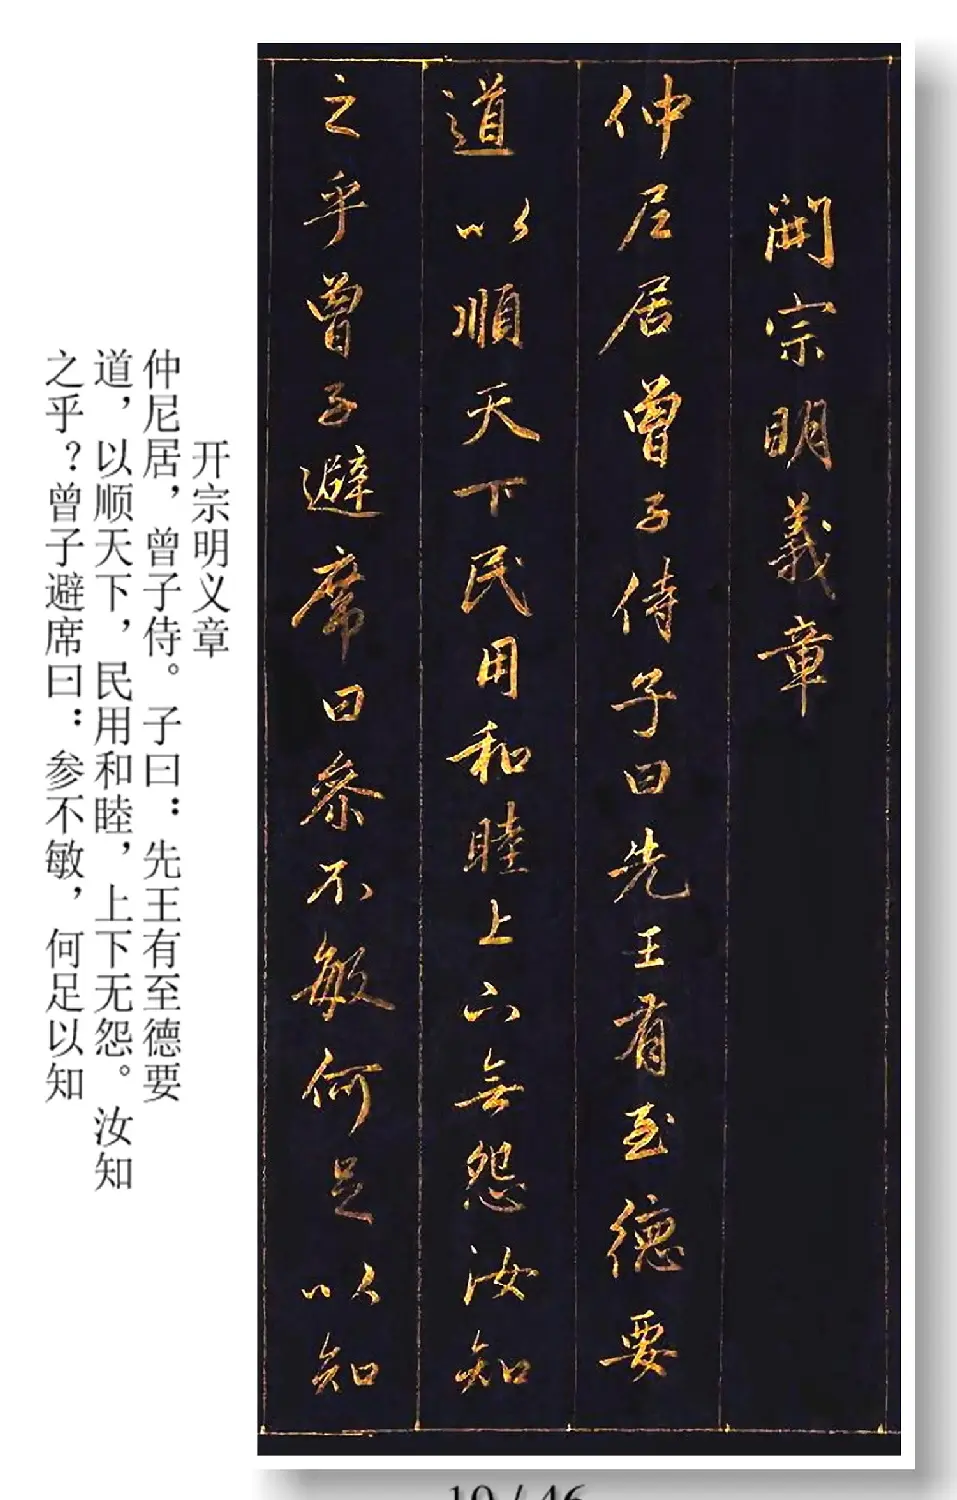 開宗明義章
仲尼居曾子侍子曰先王有至德要
道以順天下民用和睦上下無怨汝知
之乎曾子避席曰參不敏何足以知
开宗明义章
仲尼居，曾子侍。子曰：先王有至德要
道，以顺天下，民用和睦，上下无怨。汝知
之乎？曾子避席曰：参不敏，何足以知
10 / 46